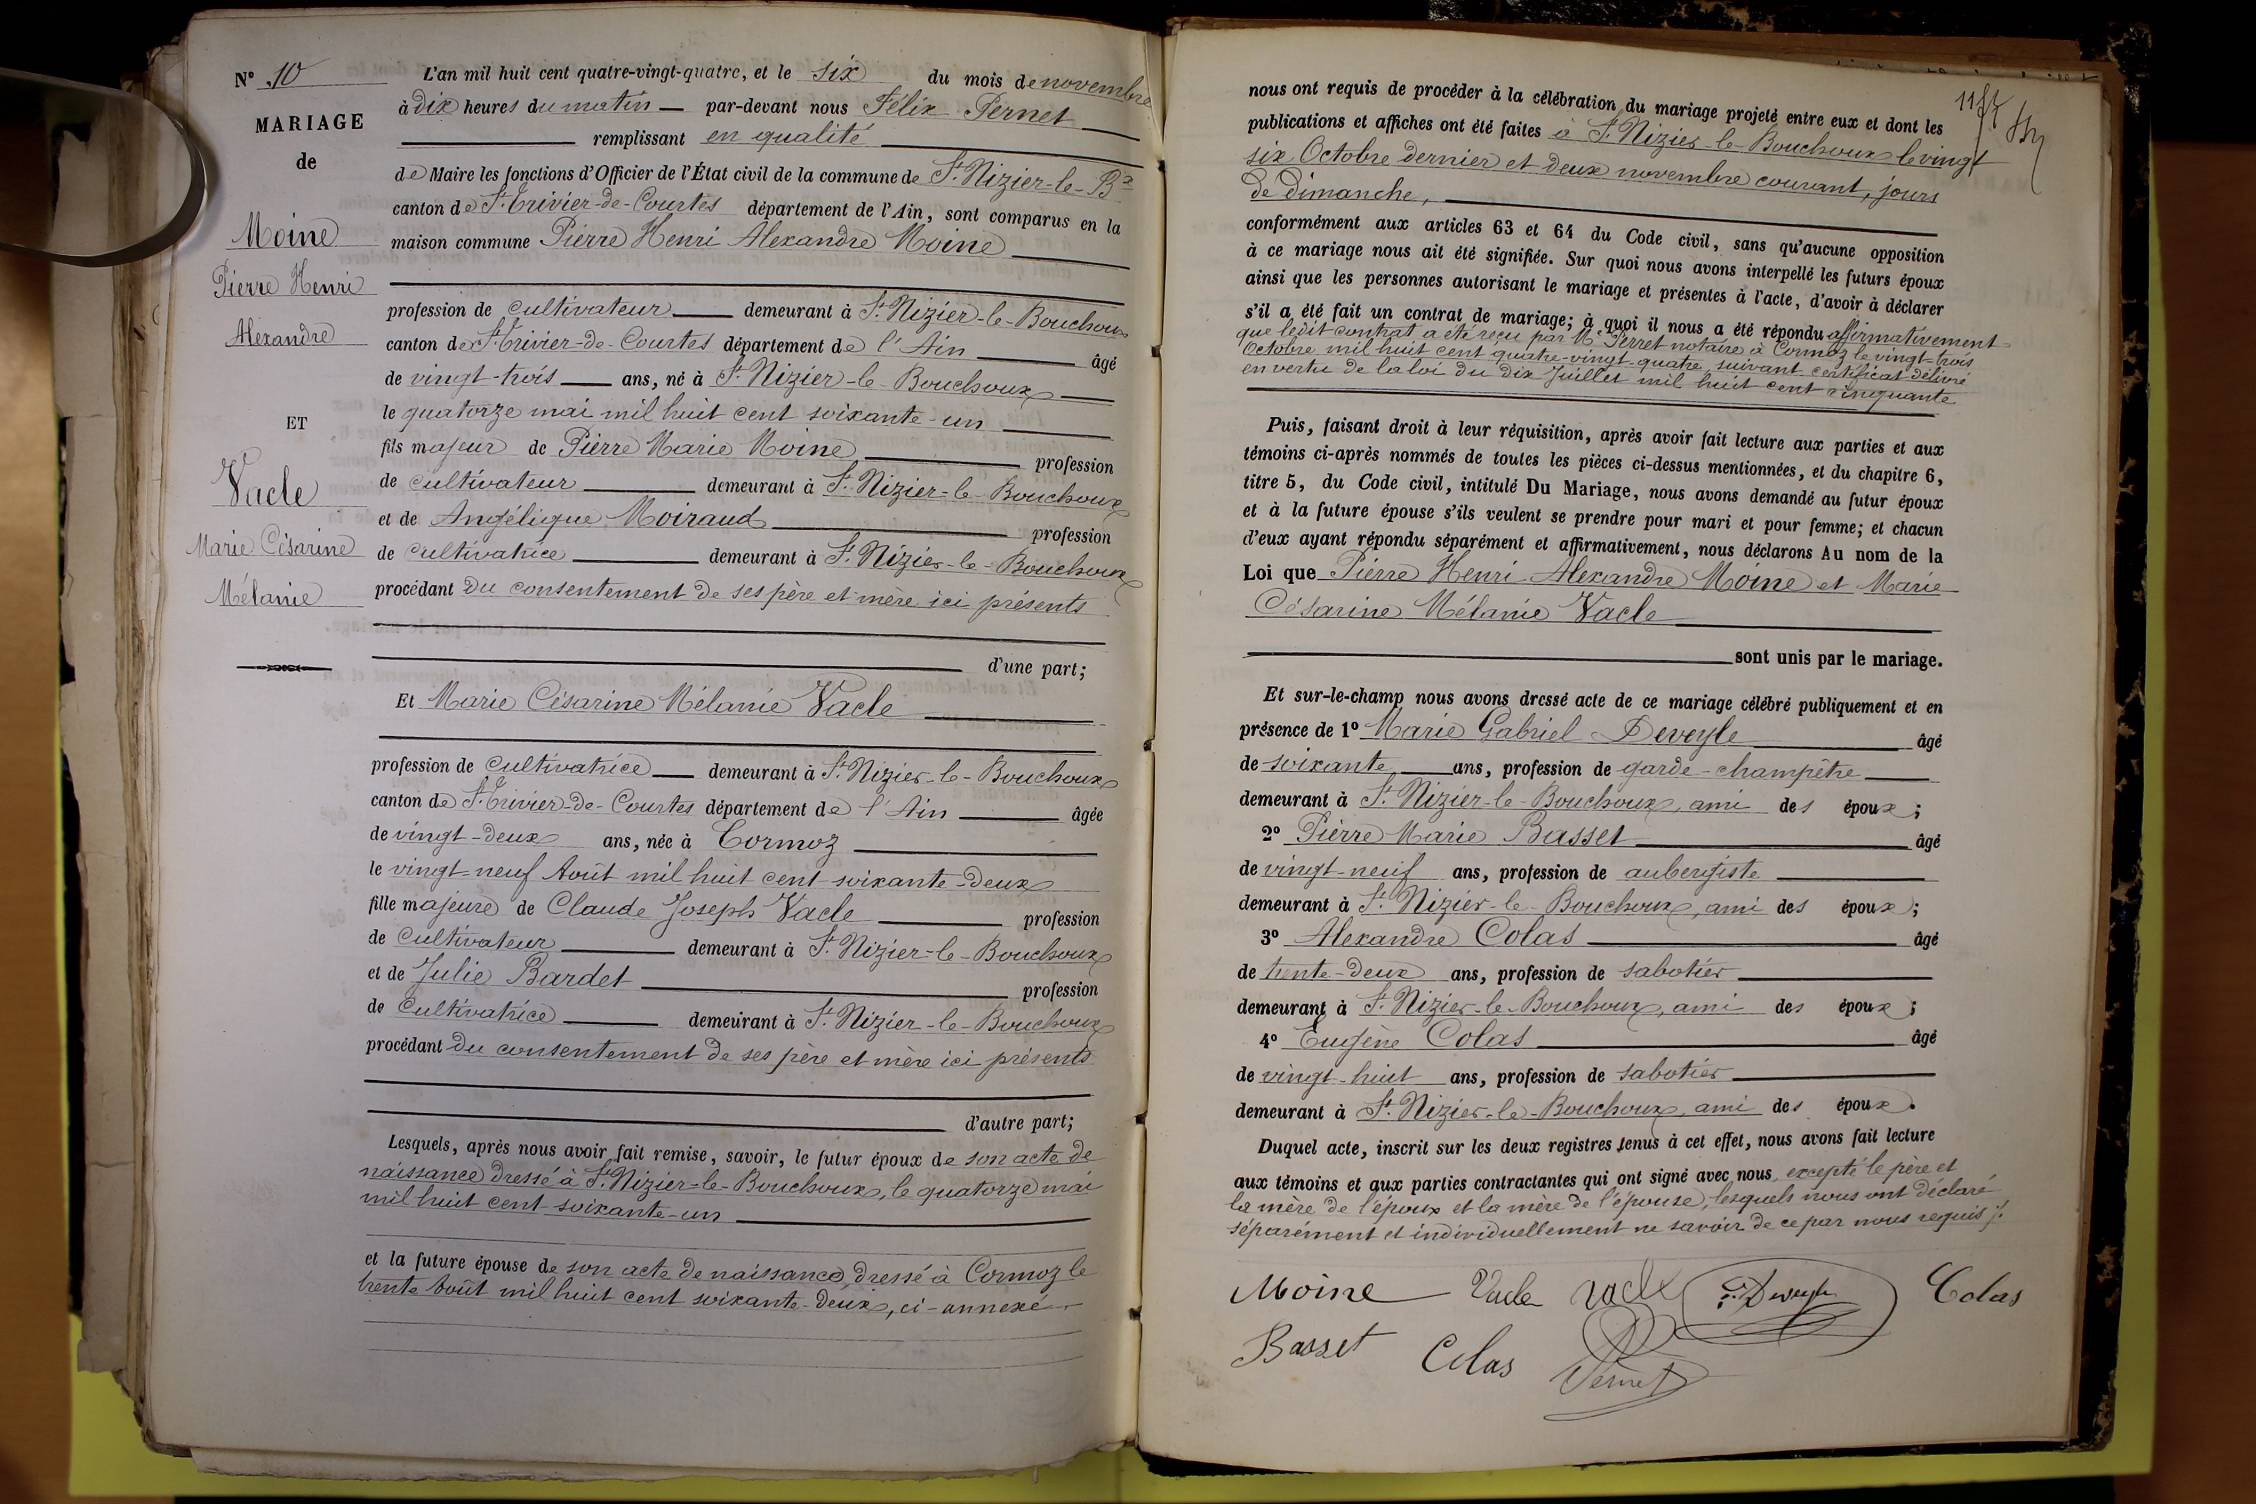 N° 10
MARIAGE
de
Moine
Pierre Henri
Alexandre
ET
Vacle
Marie Césarine
Mélanie
L'an mil huit cent quatre-vingt-quatre, et le six du mois de novembre
à dix heures du matin par-devant nous Félix Pernet
remplissant en qualité
de Maire les fonctions d'Officier de l'État civil de la commune de St. Nizier-le-Bx
canton de St. Trivier-de-Courtes département de l'Ain, sont comparus en la
maison commune Pierre Henri Alexandre Moine
profession de cultivateur demeurant à St. Nizier-le-Bouchoux
canton de St. Trivier-de-Courtes département de l'Ain âgé
de vingt-trois ans, né à St. Nizier-le-Bouchoux
le quatorze mai mil huit cent soixante-un
fils majeur de Pierre Marie Moine profession
de cultivateur demeurant à St. Nizier-le-Bouchoux
et de Angélique Moiraud profession
de cultivatrice demeurant à St. Nizier-le-Bouchoux
procédant du consentement de ses père et mère ici présents
d'une part;
Et Marie Césarine Mélanie Vacle
profession de cultivatrice demeurant à St. Nizier-le-Bouchoux
canton de St. Trivier-de-Courtes département de l'Ain âgée
de vingt-deux ans, née à Cormoz
le vingt-neuf Août mil huit cent soixante-deux
fille majeure de Claude Joseph Vacle profession
de cultivateur demeurant à St. Nizier-le-Bouchoux
et de Julie Bardet profession
de cultivatrice demeurant à St. Nizier-le-Bouchoux
procédant du consentement de ses père et mère ici présents
d'autre part;
Lesquels, après nous avoir fait remise, savoir, le futur époux de son acte de
naissance dressé à St. Nizier-le-Bouchoux, le quatorze mai
mil huit cent soixante-un
et la future épouse de son acte de naissance, dressé à Cormoz le
trente Août mil huit cent soixante-deux, ci-annexé
nous ont requis de procéder à la célébration du mariage projeté entre eux et dont les
publications et affiches ont été faites à St. Nizier-le-Bouchoux le vingt
six Octobre dernier et deux novembre courant, jours
de dimanche,
conformément aux articles 63 et 64 du Code civil, sans qu'aucune opposition
à ce mariage nous ait été signifiée. Sur quoi nous avons interpellé les futurs époux
ainsi que les personnes autorisant le mariage et présentes à l'acte, d'avoir à déclarer
s'il a été fait un contrat de mariage; à quoi il nous a été répondu affirmativement
que ledit contrat a été reçu par Me Perret notaire à Cormoz le vingt-trois
Octobre mil huit cent quatre-vingt-quatre suivant certificat délivré
en vertu de la loi du dix Juillet mil huit cent cinquante
Puis, faisant droit à leur réquisition, après avoir fait lecture aux parties et aux
témoins ci-après nommés de toutes les pièces ci-dessus mentionnées, et du chapitre 6,
titre 5, du Code civil, intitulé Du Mariage, nous avons demandé au futur époux
et à la future épouse s'ils veulent se prendre pour mari et pour femme; et chacun
d'eux ayant répondu séparément et affirmativement, nous déclarons Au nom de la
Loi que Pierre Henri Alexandre Moine et Marie
Césarine Mélanie Vacle
sont unis par le mariage.
Et sur-le-champ nous avons dressé acte de ce mariage célébré publiquement et en
présence de 1° Marie Gabriel Deveyle âgé
de soixante ans, profession de garde-champêtre
demeurant à St. Nizier-le-Bouchoux, ami des époux;
2° Pierre Marie Basset âgé
de vingt-neuf ans, profession de aubergiste
demeurant à St. Nizier-le-Bouchoux, ami des époux;
3° Alexandre Colas âgé
de trente-deux ans, profession de sabotier
demeurant à St. Nizier-le-Bouchoux, ami des époux;
4° Eugène Colas âgé
de vingt-huit ans, profession de sabotier
demeurant à St. Nizier-le-Bouchoux, ami des époux.
Duquel acte, inscrit sur les deux registres tenus à cet effet, nous avons fait lecture
aux témoins et aux parties contractantes qui ont signé avec nous, excepté le père et
la mère de l'époux et la mère de l'épouse, lesquels nous ont déclaré
séparément et individuellement ne savoir de ce par nous requis
Moine Vacle Vacle Deveyle Colas
Basset Colas Pernet